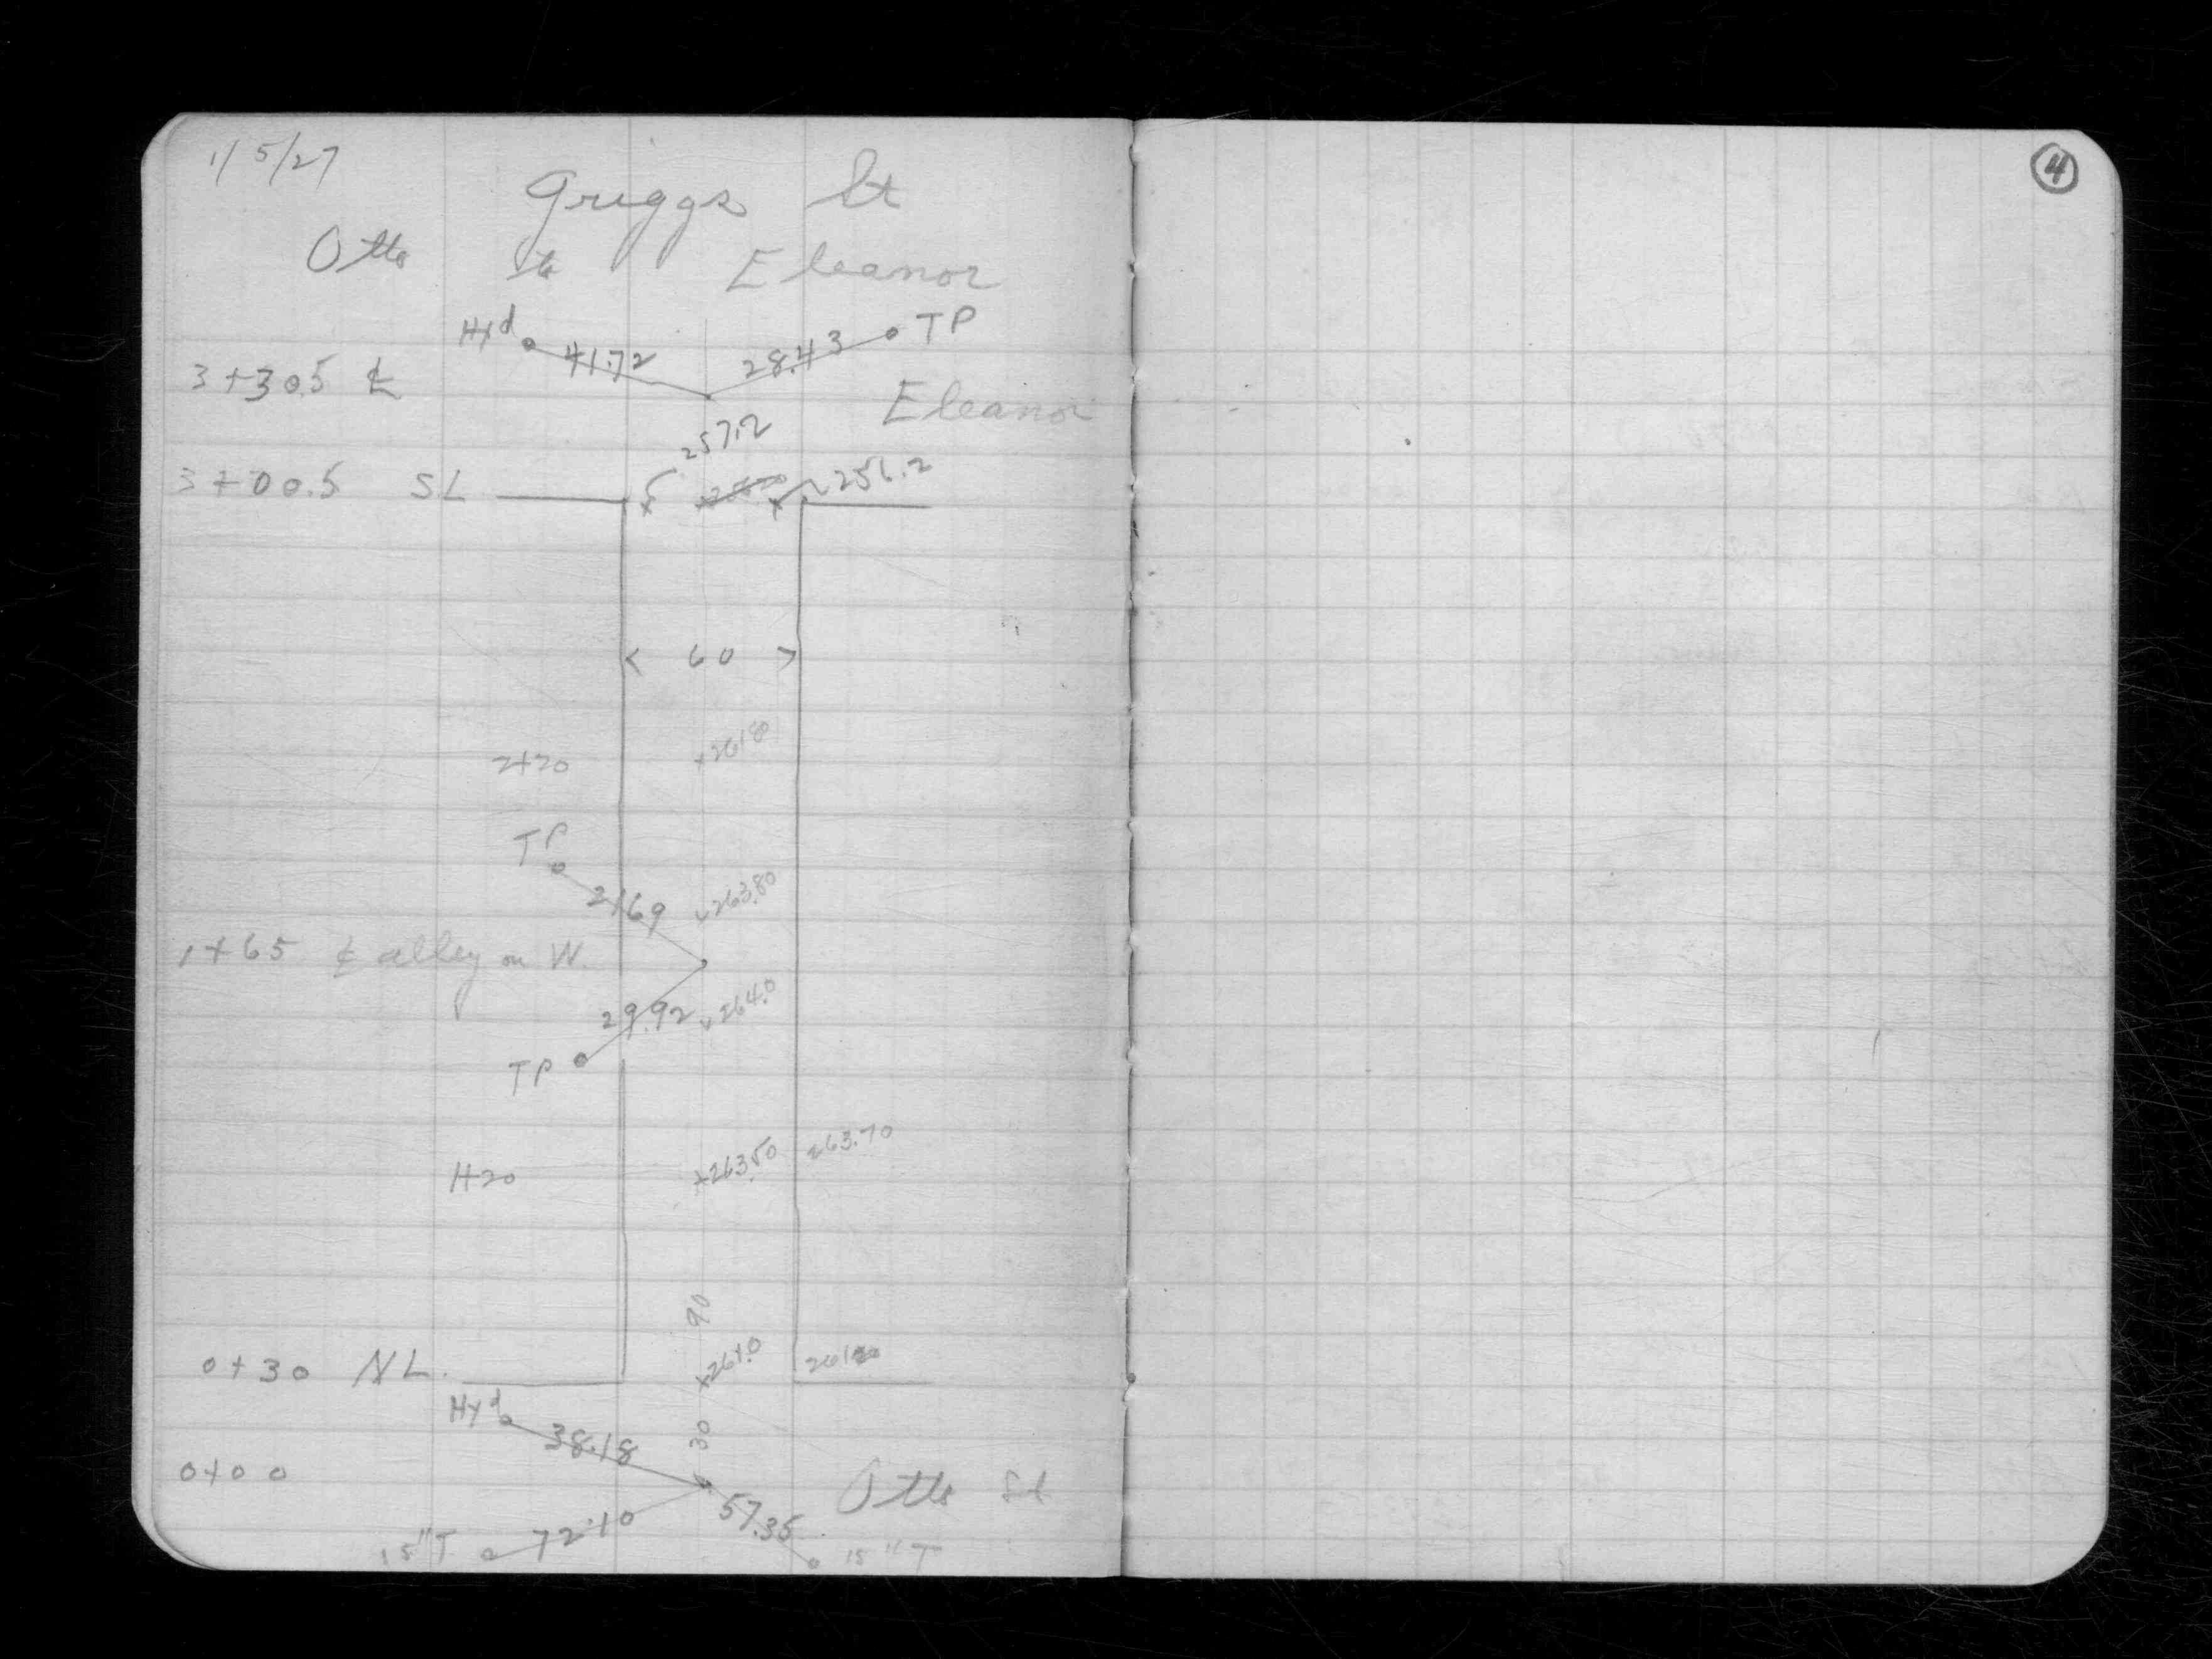 1/5/27
④
Griggs St
Otto to Eleanor
Hyd 41.72 28.43 TP
3+30.5 ℄
Eleanor
257.2
3+00.5 SL 256.2
< 60 >
2+20 +261.80
TP
21.69 263.80
1+65 ℄ alley on W.
29.92 264.0
TP
1+20 +263.50 263.70
90
0+30 NL. +261.0
Hyd 38.18 30
0+00
Otto St
15"T 72.10 57.35 15"T